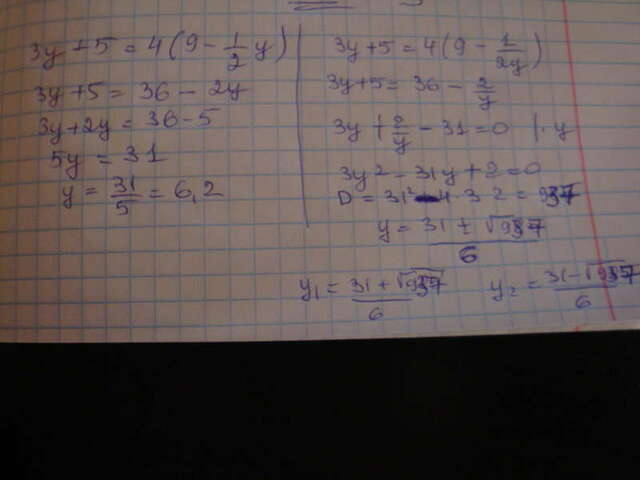 3y + 5 = 4(9 - 1/2 y)
3y + 5 = 36 - 2y
3y + 2y = 36 - 5
5y = 31
y = 31/5 = 6,2
3y + 5 = 4(9 - 1/2y)
3y + 5 = 36 - 2/y
3y + 2/y - 31 = 0 | · y
3y² - 31y + 2 = 0
D = 31² - 4 · 3 · 2 = 937
y = (31 ± √937)/6
y₁ = (31 + √937)/6 y₂ = (31 - √937)/6